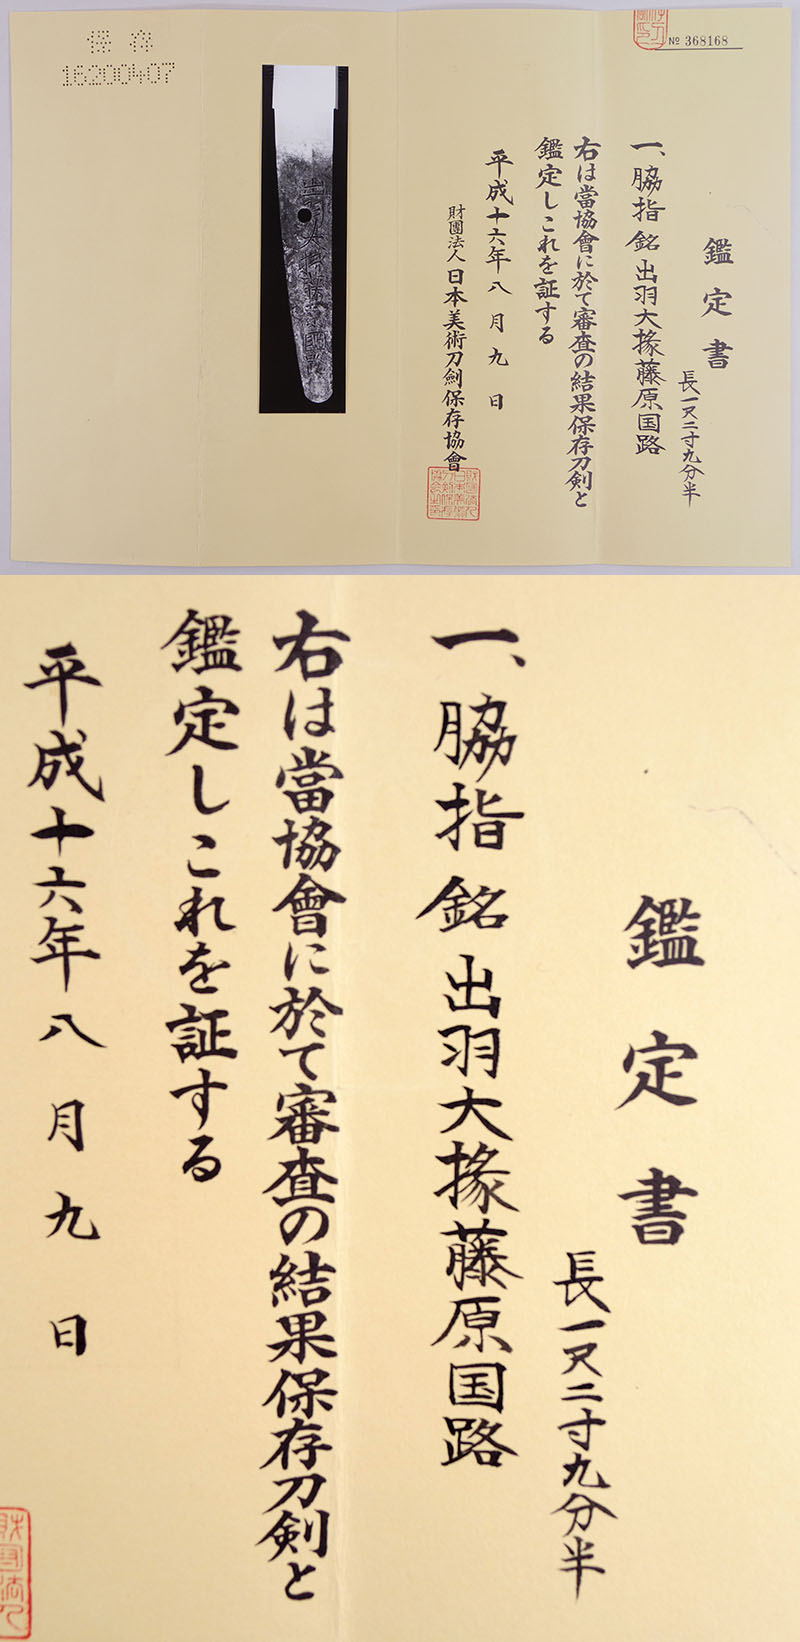 保存
16200407
No 368168
鑑定書
長一尺二寸九分半
一、脇指 銘 出羽大掾藤原国路
右は當協會に於て審査の結果保存刀剣と
鑑定しこれを証する
平成十六年八月九日
財團法人日本美術刀劍保存協會
出羽大掾藤原国路
鑑定書
長一尺二寸九分半
一、脇指 銘 出羽大掾藤原国路
右は當協會に於て審査の結果保存刀剣と
鑑定しこれを証する
平成十六年八月九日